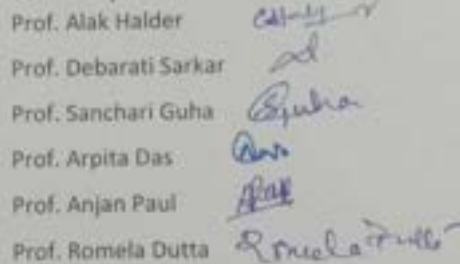 Prof. Alak Halder
Prof. Debarati Sarkar
Prof. Sanchari Guha SGuha
Prof. Arpita Das
Prof. Anjan Paul
Prof. Romela Dutta Romela Dutta